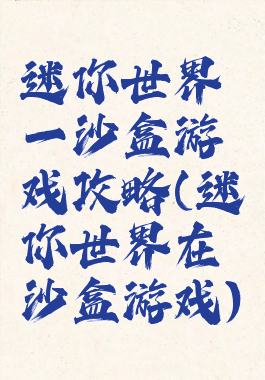 迷你世界
一沙盒游
戏攻略(迷
你世界在
沙盒游戏)